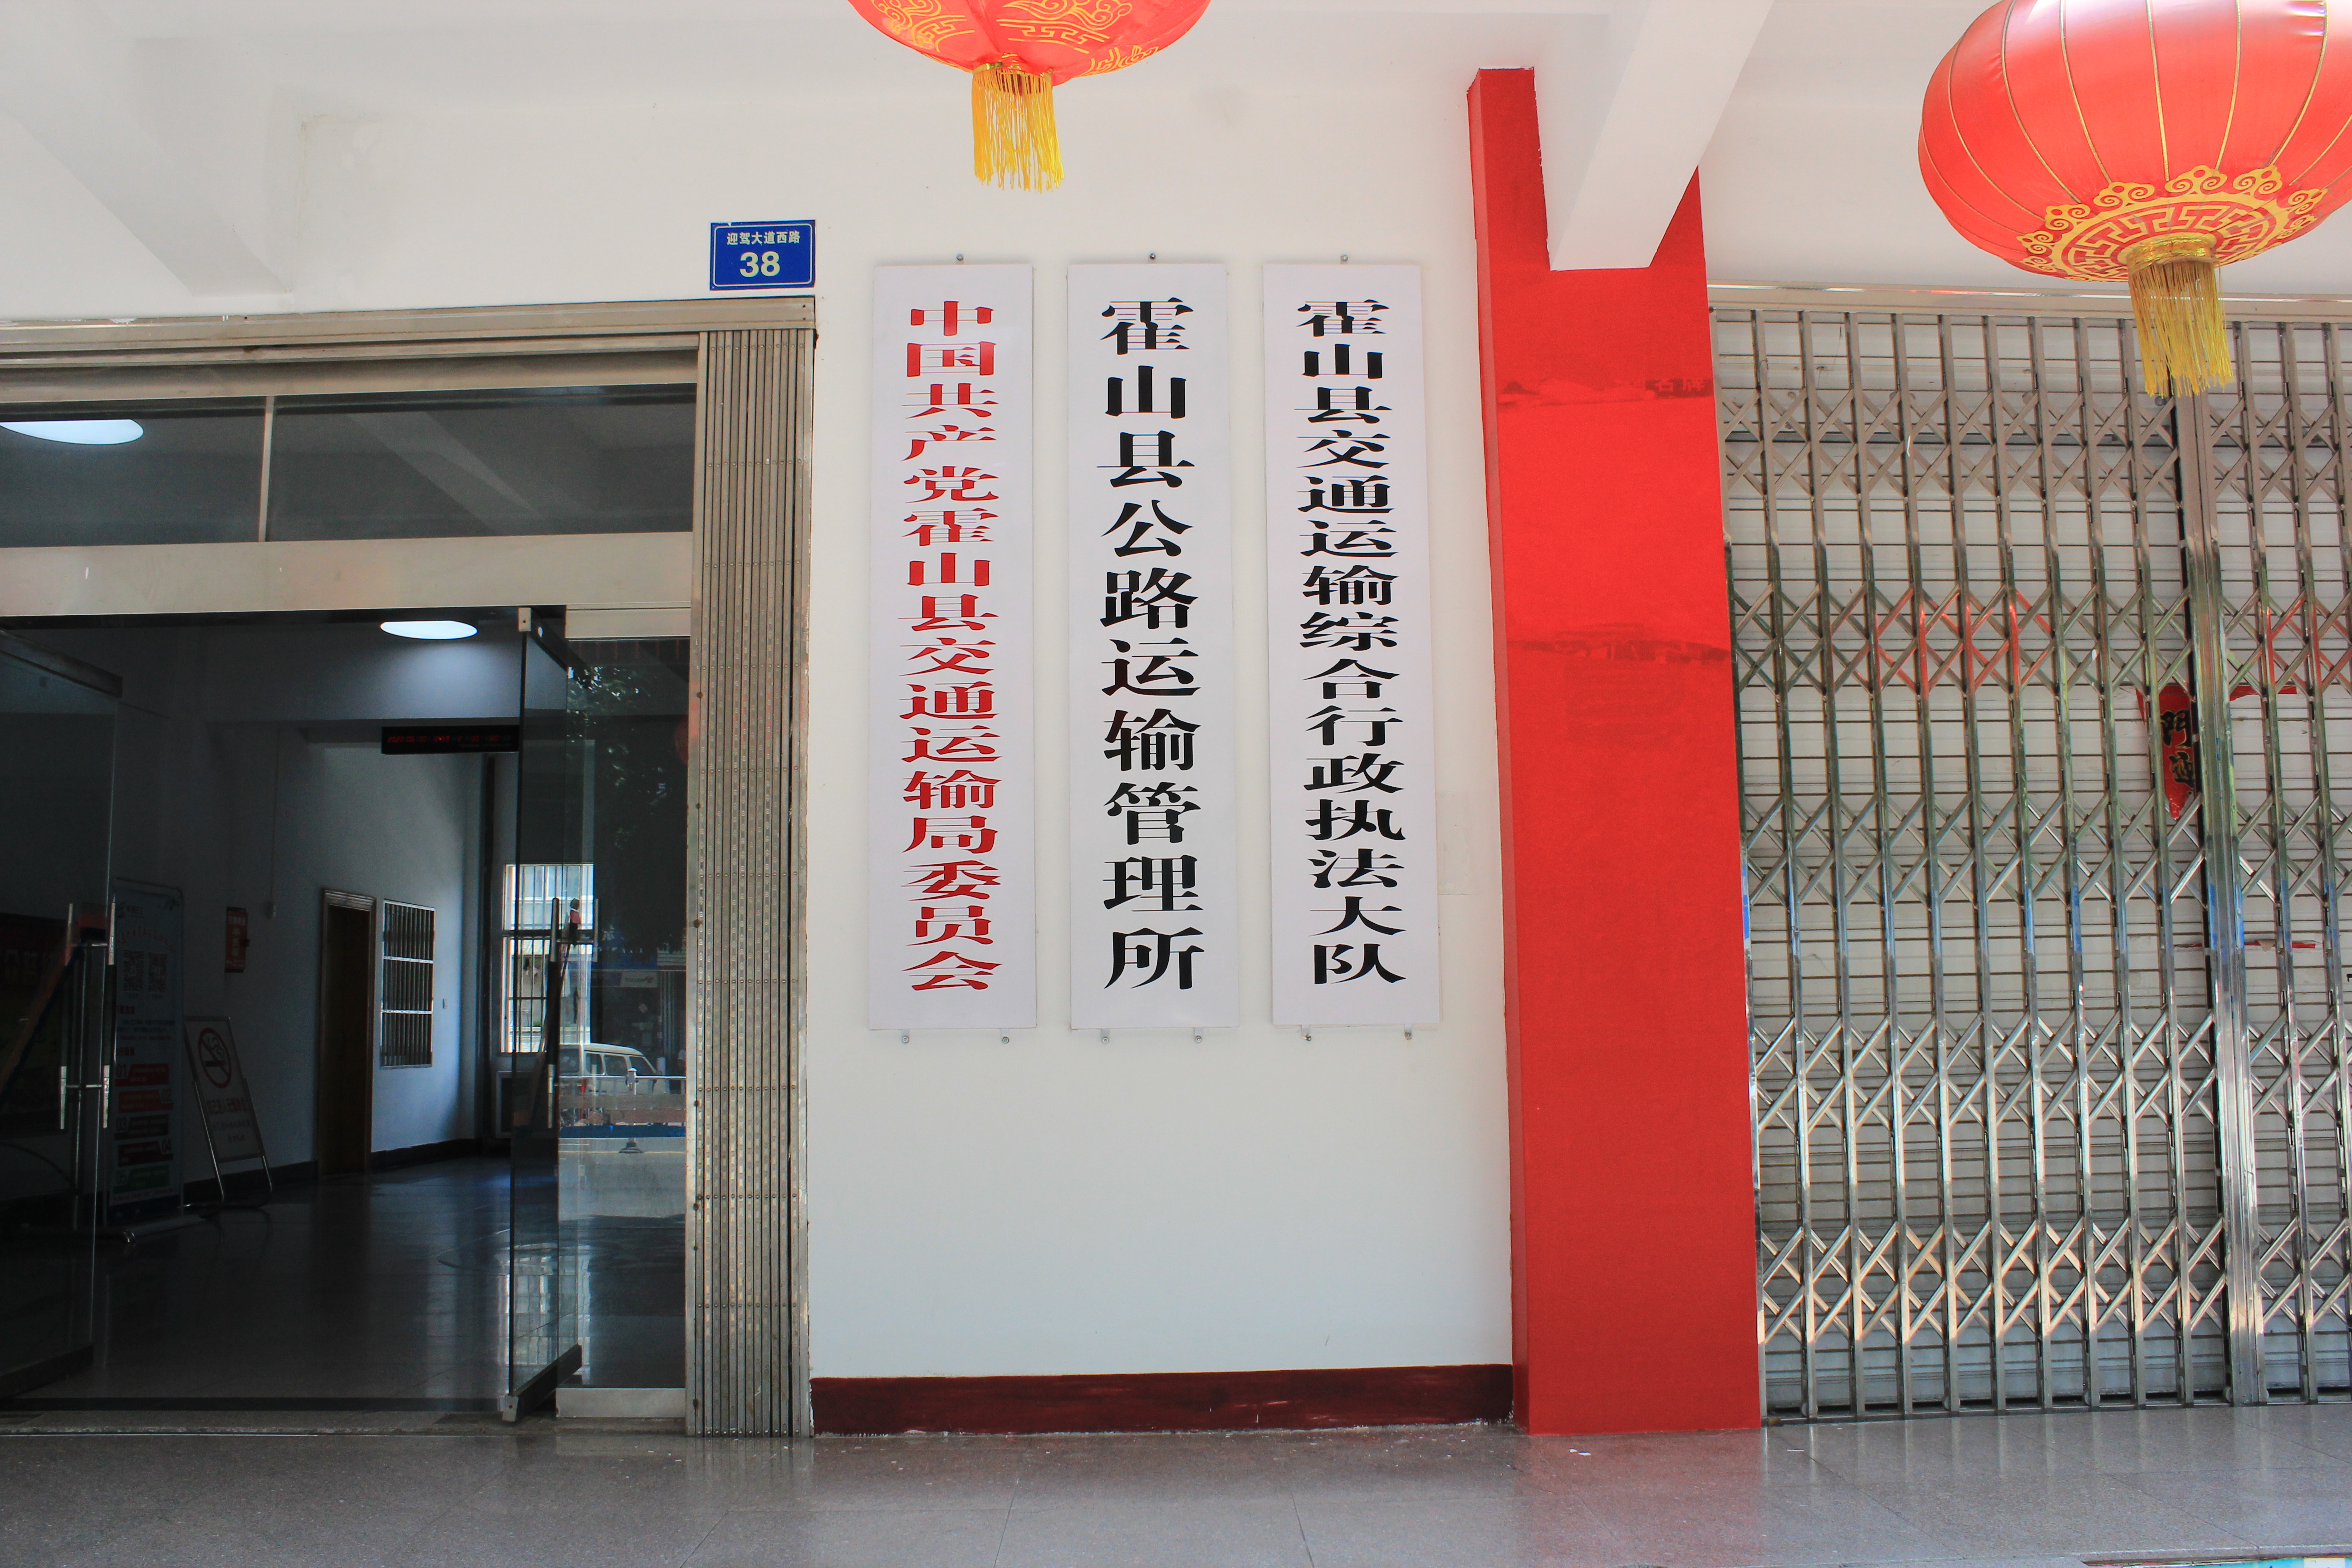 迎驾大道西路
38
中国共产党霍山县交通运输局委员会
霍山县公路运输管理所
霍山县交通运输综合行政执法大队
門迎